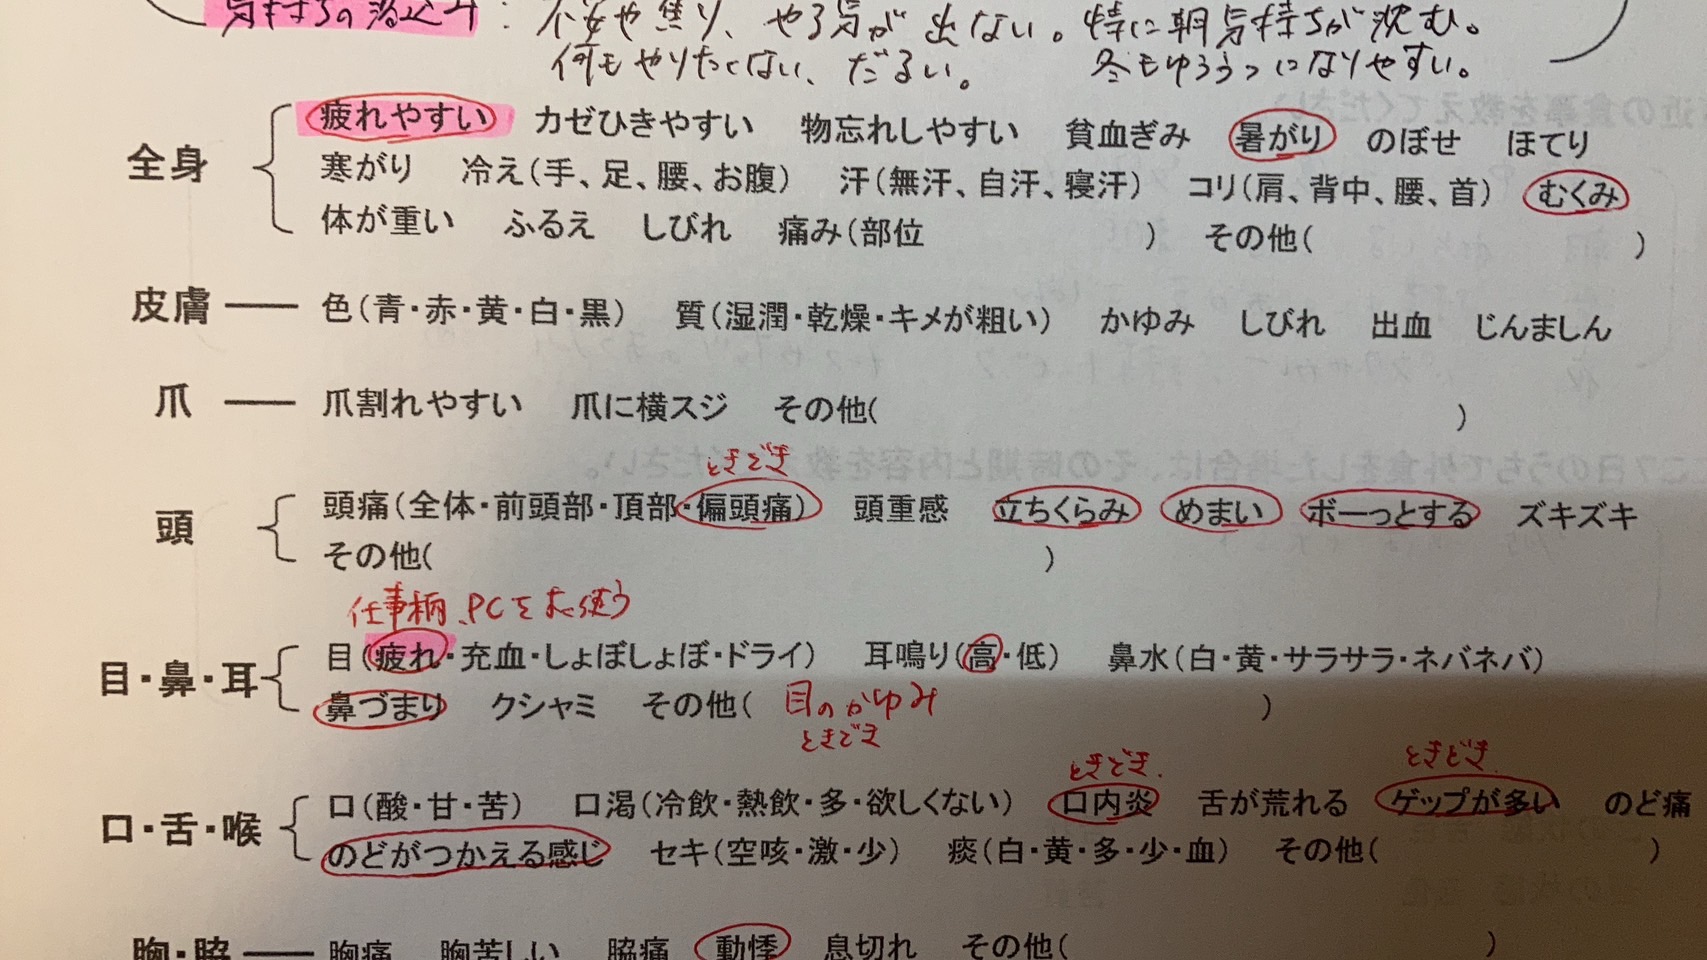 気持ちの落込み：不安や焦り、やる気が出ない。特に朝気持ちが沈む。
何もやりたくない、だるい。 冬もゆううつになりやすい。
全身 疲れやすい カゼひきやすい 物忘れしやすい 貧血ぎみ 暑がり のぼせ ほてり
寒がり 冷え(手、足、腰、お腹) 汗(無汗、自汗、寝汗) コリ(肩、背中、腰、首) むくみ
体が重い ふるえ しびれ 痛み(部位 ) その他( )
皮膚 色(青・赤・黄・白・黒) 質(湿潤・乾燥・キメが粗い) かゆみ しびれ 出血 じんましん
爪 爪割れやすい 爪に横スジ その他( )
ときどき
頭 頭痛(全体・前頭部・頂部・偏頭痛) 頭重感 立ちくらみ めまい ボーっとする ズキズキ
その他( )
仕事柄、PCをよく使う
目・鼻・耳 目(疲れ・充血・しょぼしょぼ・ドライ) 耳鳴り(高・低) 鼻水(白・黄・サラサラ・ネバネバ)
鼻づまり クシャミ その他( 目のかゆみ )
ときどき
ときどき. ときどき.
口・舌・喉 口(酸・甘・苦) 口渇(冷飲・熱飲・多・欲しくない) 口内炎 舌が荒れる ゲップが多い のど痛
のどがつかえる感じ セキ(空咳・激・少) 痰(白・黄・多・少・血) その他( )
胸・脇 胸痛 胸苦しい 脇痛 動悸 息切れ その他( )